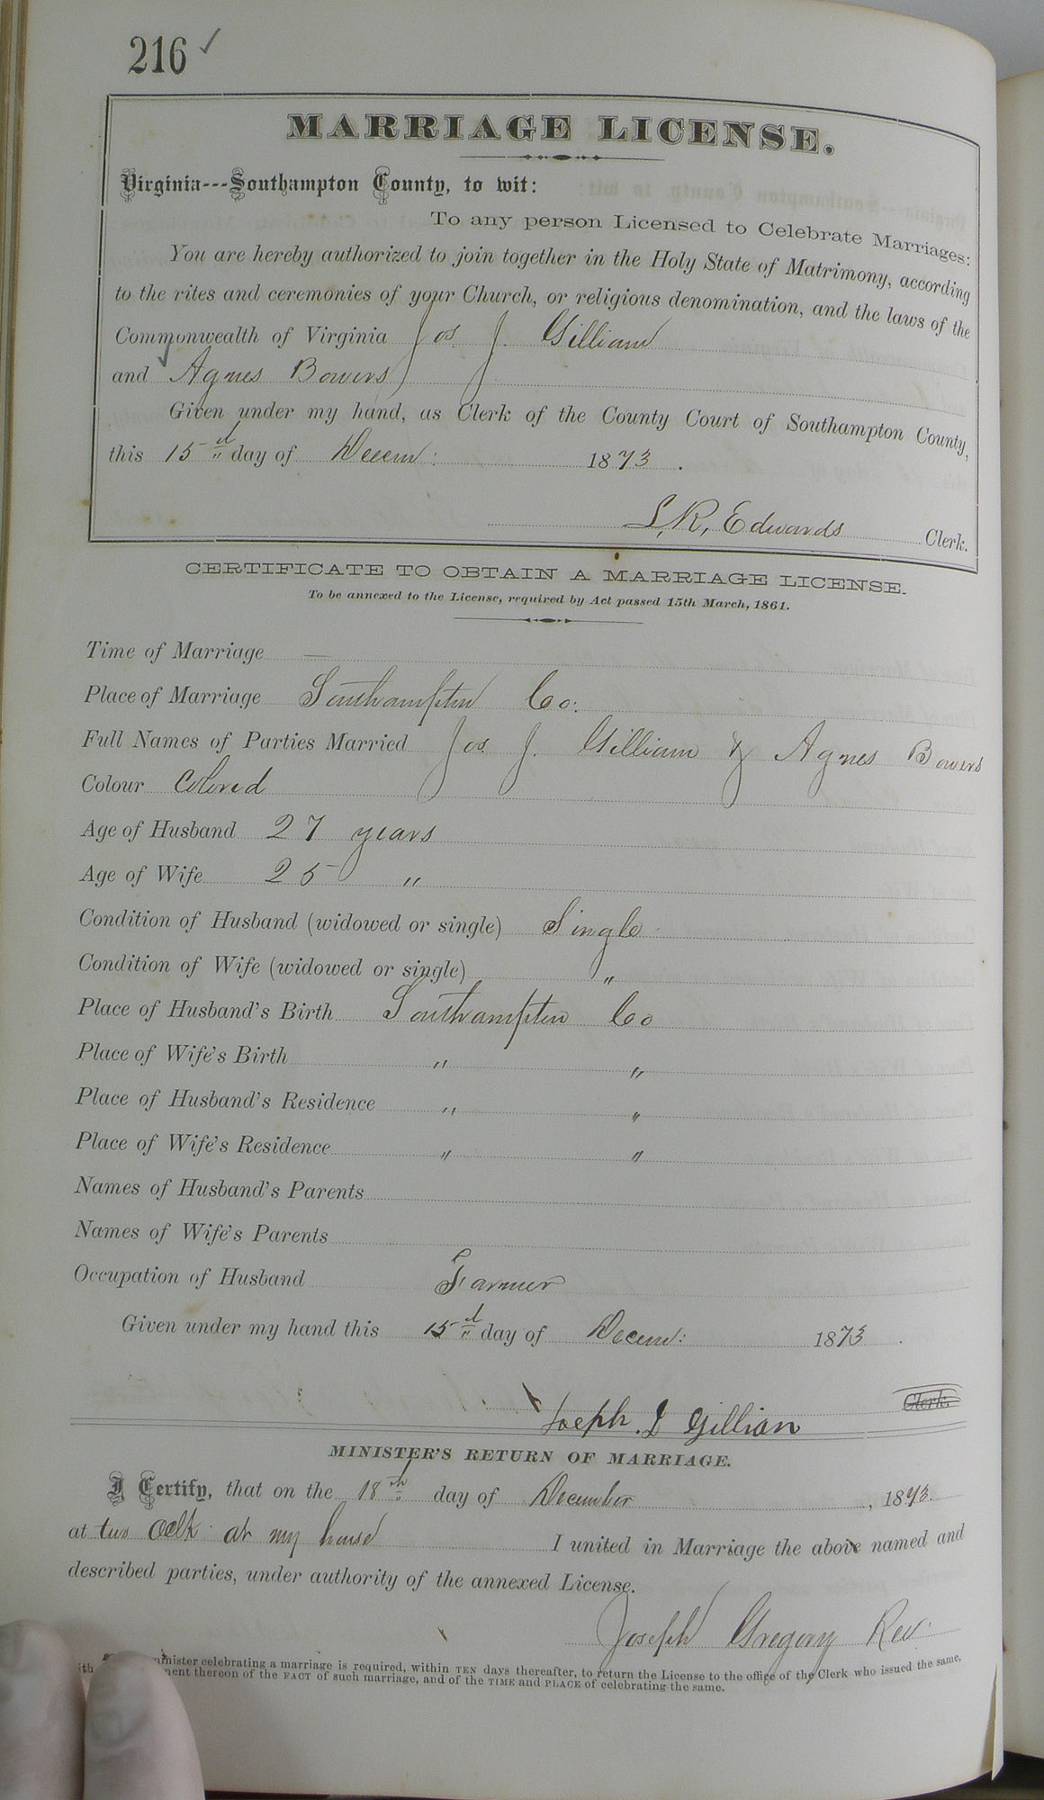 216 ✓
MARRIAGE LICENSE.
Virginia---Southampton County, to wit:
To any person Licensed to Celebrate Marriages:
You are hereby authorized to join together in the Holy State of Matrimony, according
to the rites and ceremonies of your Church, or religious denomination, and the laws of the
Commonwealth of Virginia Jos. J. Gilliam
and Agnes Bowers
Given under my hand, as Clerk of the County Court of Southampton County,
this 15 d day of Decem: 1873.
L, R, Edwards Clerk.
CERTIFICATE TO OBTAIN A MARRIAGE LICENSE.
To be annexed to the License, required by Act passed 15th March, 1861.
Time of Marriage —
Place of Marriage Southampton Co:
Full Names of Parties Married Jos. J. Gilliam & Agnes Bowers
Colour Colored
Age of Husband 27 years
Age of Wife 25 "
Condition of Husband (widowed or single) Single
Condition of Wife (widowed or single) "
Place of Husband's Birth Southampton Co
Place of Wife's Birth " "
Place of Husband's Residence " "
Place of Wife's Residence " "
Names of Husband's Parents
Names of Wife's Parents
Occupation of Husband Farmer
Given under my hand this 15 d day of Decem: 1873.
Joeph. J Gillian Clerk.
MINISTER'S RETURN OF MARRIAGE.
I Certify, that on the 18th day of December, 1873.
at two Oclk at my house I united in Marriage the above named and
described parties, under authority of the annexed License.
Joseph Gregory Rev.
minister celebrating a marriage is required, within TEN days thereafter, to return the License to the office of the Clerk who issued the same,
thereon of the FACT of such marriage, and of the TIME and PLACE of celebrating the same.